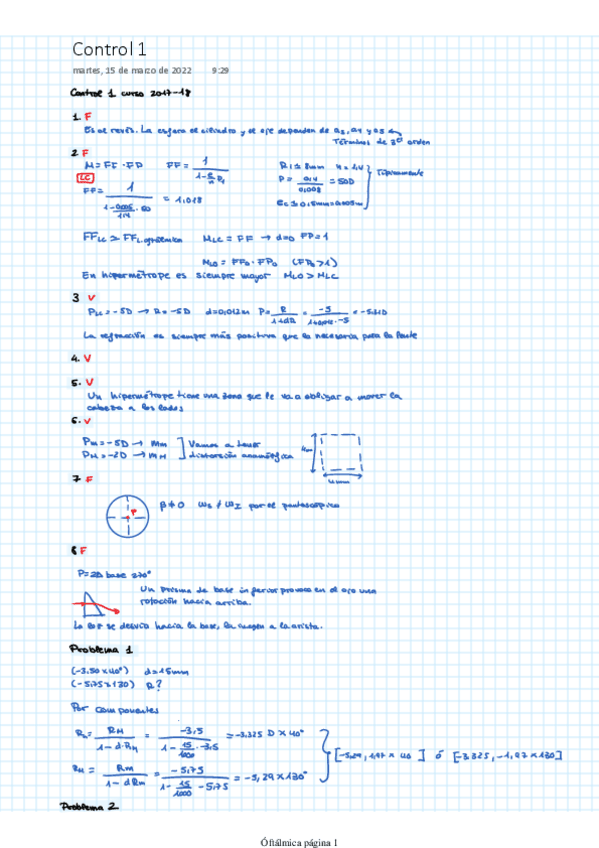 Control 1
martes, 15 de marzo de 2022 9:29
Control 1 curso 2017-18
1. F
Es al revés. La esfera el cilindro y el eje dependen de a3, a4 y a5
Términos de 3º orden
2. F
M = FF · FP FF = 1 / 1 -
LC
FF = 1 / 1 - 0,005/1,4 · 50 = 1,018
R1 = 8mm n = 1,4
P = 0,4 / 0,008 = 50D
Típicamente
FFLC > FFL.oftálmica MLC = FF → d=0 FP=1
MLO = FFO · FPO (FPO > 1)
En hipermétrope es siempre mayor MLO > MLC
3 V
PLC = -5D → R = -5D d = 0,012m P = R / 1+dR = -5 / 1+0,012·-5 =
La refracción es siempre más positiva que la necesaria para la lente
4. V
5. V
Un hipermétrope tiene una zona que le va a obligar a mover la
cabeza a los lados
6. V
Pm = -5D → Mm
PM = -2D → MM
Vamos a tener
distorsión anamórfica
7 F
P
β ≠ 0 por el pantoscópico
8 F
P = 2Δ base 270°
Un prisma de base inferior provoca en el ojo una
rotación hacia arriba.
La luz se desvía hacia la base, la imagen a la arista.
Problema 1
(-3.50 x 40°) d = 15mm
(-5.75 x 130) R?
Por componentes
RM / 1 - d·RM = -3,5 / 1 - 15/1000 · -3,5 = -3,325 D x 40°
Rm / 1 - dRm = -5,75 / 1 - 15/1000 -5,75 = -5,29 x 130°
[-5,29, 1,97 x 40] ó [-3,325, -1,97 x 130]
Problema 2
Óftálmica página 1